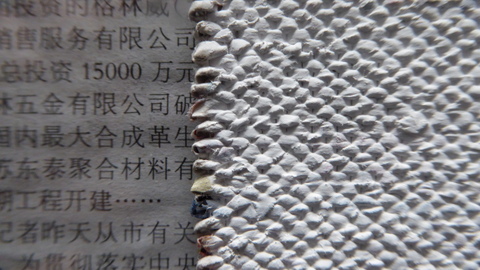 投资的格林威(
销售服务有限公司
总投资 15000 万元
林五金有限公司破
国内最大合成革生
苏东泰聚合材料有
期工程开建……
记者昨天从市有关
为贯彻落实中央